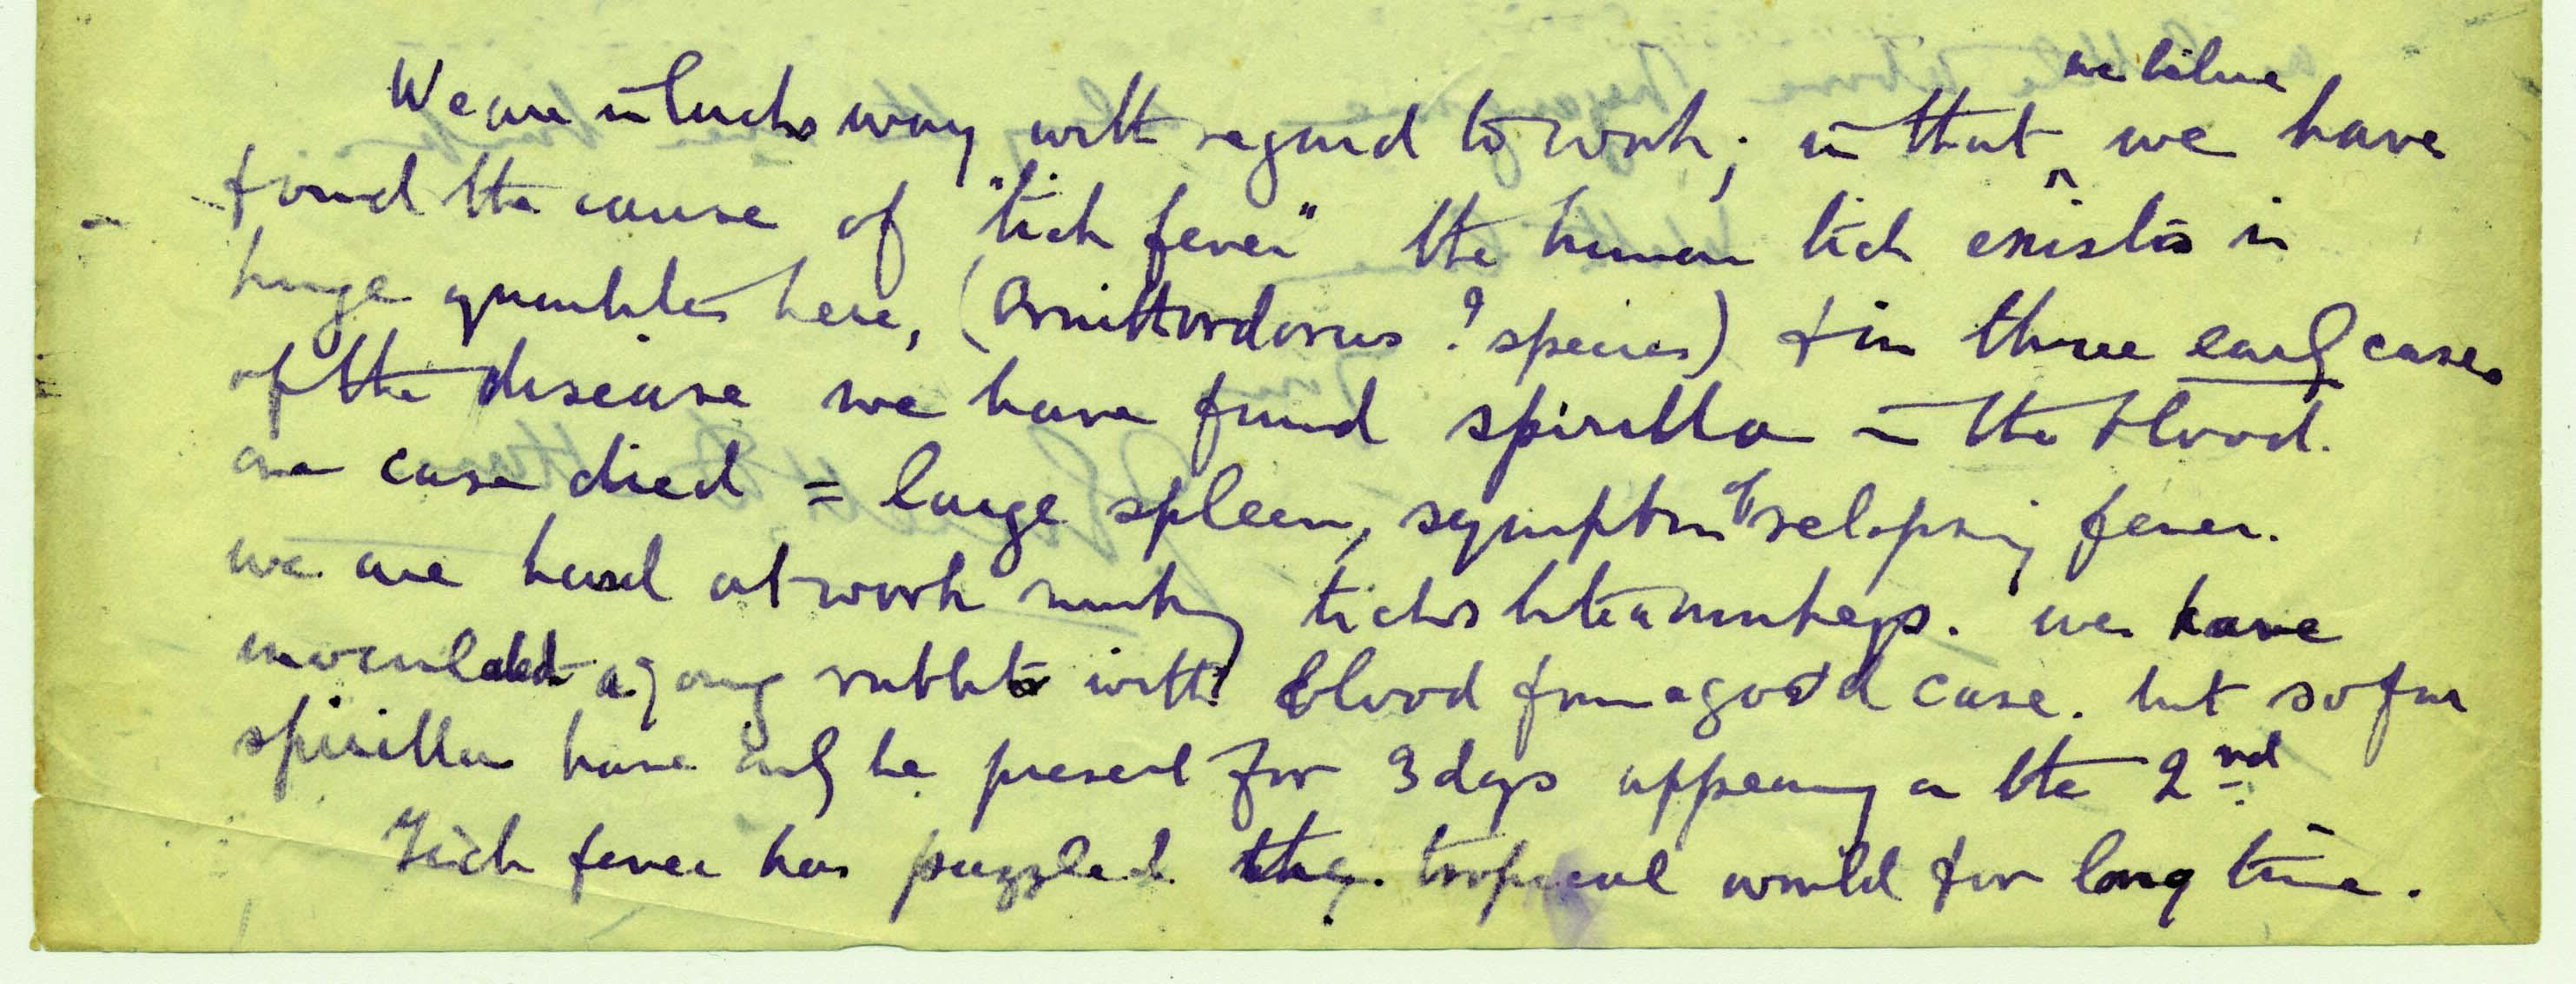 we believe
We are in lucks way with regard to work; in that ^ we have
found the cause of "tick fever" the human tick exists in
huge quantities here, (Ornithordorus ? species) & in three early cases
of the disease we have found spirilla in the blood.
one case died = large spleen, symptoms of relapsing fever.
we are hard at work making ticks bite monkeys. we have
inoculated a young rabbit with blood from a good case. but so far
spirilla have only be present for 3 days appearing on the 2nd
Tick fever has puzzled the tropical world for long time.